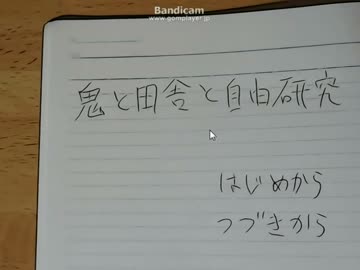 Bandicam
www.gomplayer.jp
鬼と田舎と自由研究
はじめから
つづきから